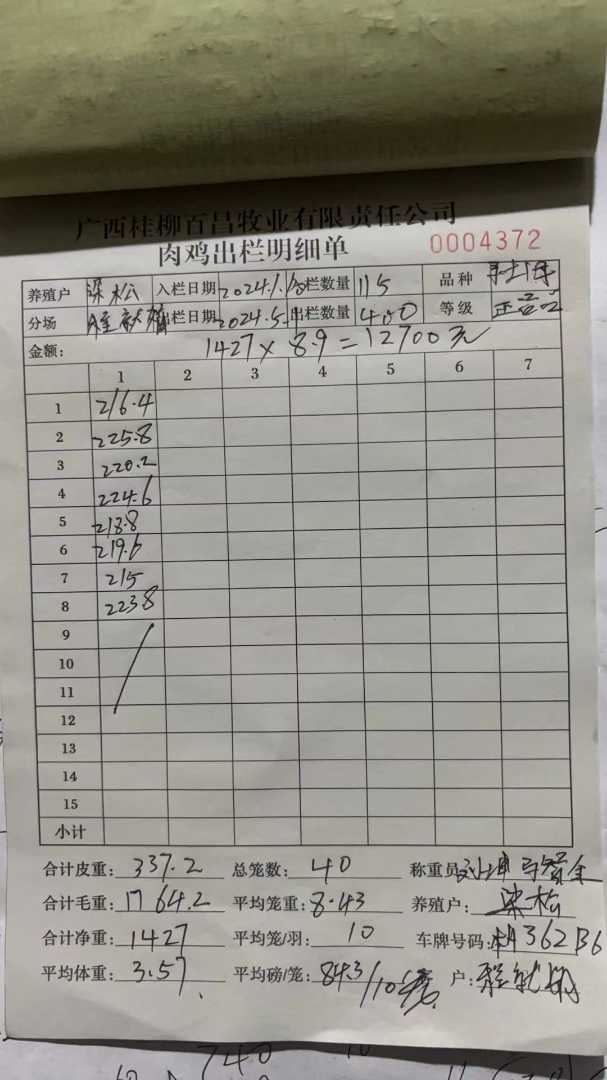 广西桂柳百昌牧业有限责任公司
肉鸡出栏明细单 0004372
养殖户 梁松 入栏日期 2024.1. 栏数量 115 品种
分场 栏日期 2024.5. 出栏数量 400 等级
金额: 1427×8.9=12700元
1 2 3 4 5 6 7
1 216.4
2 225.8
3 220.2
4 224.6
5 218.8
6 219.6
7 215
8 223.8
9
10
11
12
13
14
15
小计
合计皮重: 337.2 总笼数: 40 称重员
合计毛重: 1764.2 平均笼重: 8.43 养殖户: 梁松
合计净重: 1427 平均笼/羽: 10 车牌号码: 362B6
平均体重: 3.57 平均磅/笼: 843/10 户:
740